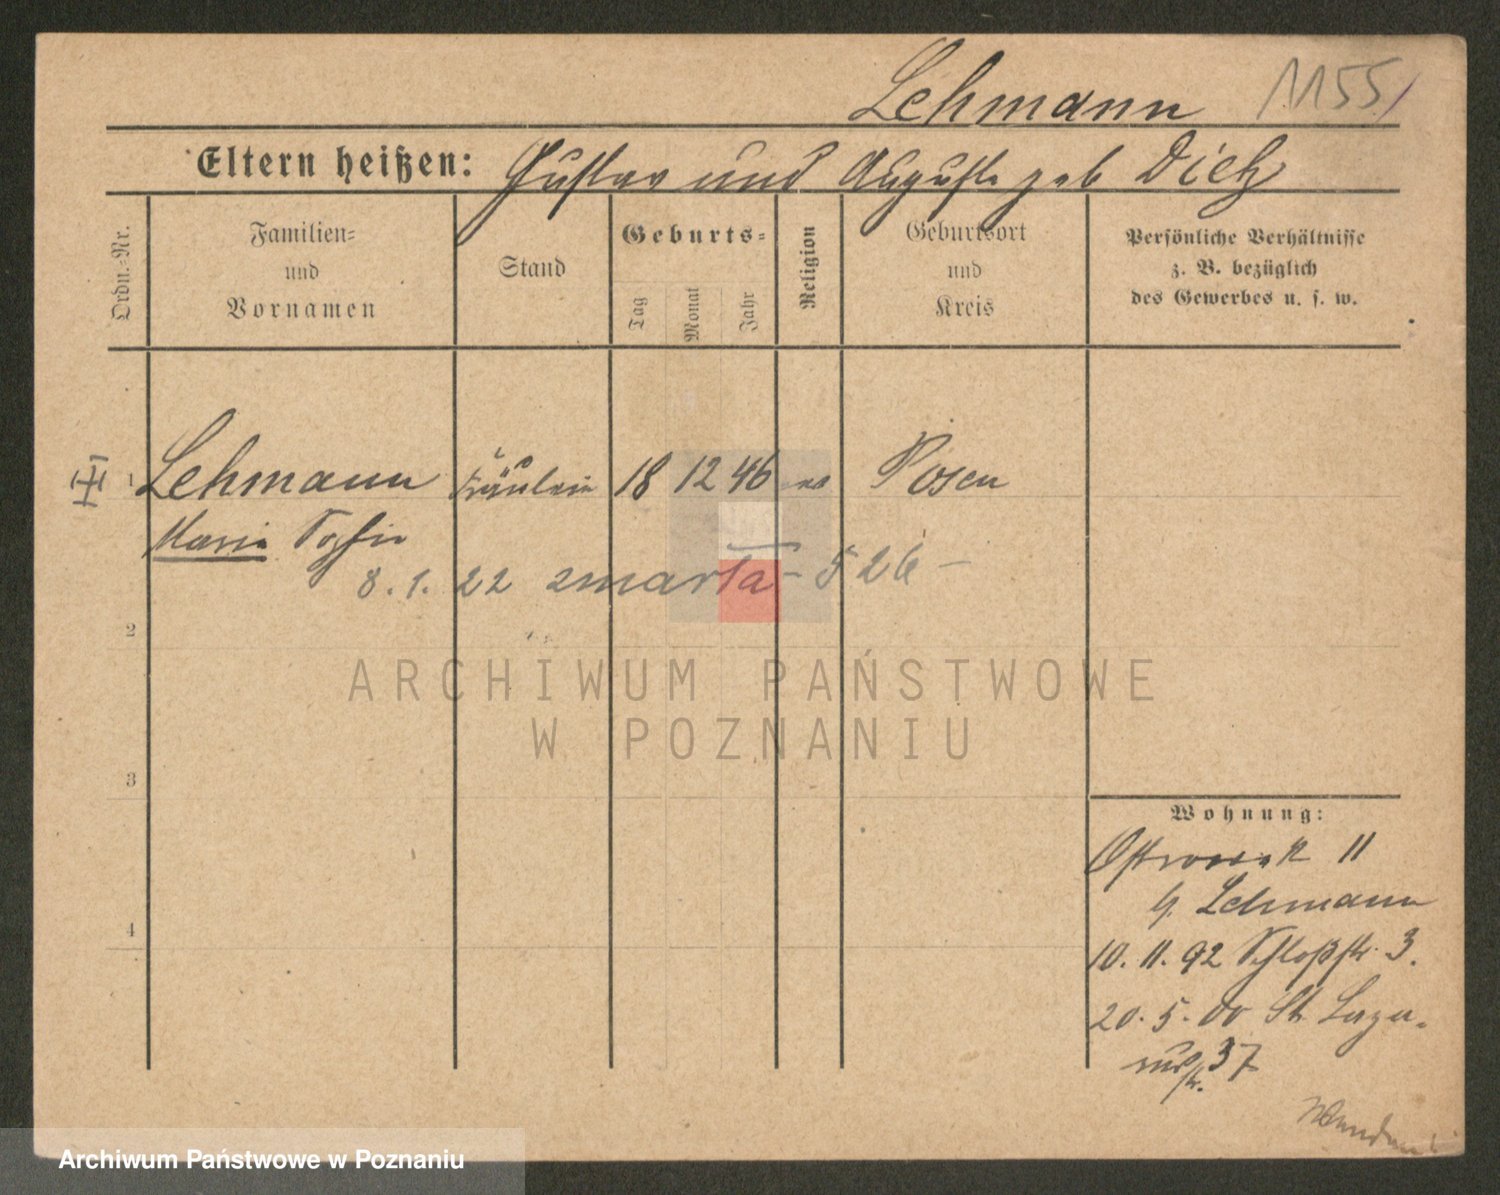 Lehmann 1155
Eltern heißen: Gustav und Auguste geb Dietz
Ordn.-Nr.
Familien-
und
Vornamen
Stand
Geburts-
Tag
Monat
Jahr
Religion
Geburtsort
und
Kreis
Persönliche Verhältnisse
z. B. bezüglich
des Gewerbes u. s. w.
1 Lehmann Fräulein 18 12 46 ev Posen
Marie Sofie
8. 1. 22 zmarła - 5 26 -
2
ARCHIWUM PAŃSTWOWE
W POZNANIU
3
Wohnung:
11
G. Lehmann
4
10. 11. 92 Schloßstr. 3.
20. 5. 00 St. Laza-
russtr. 37
Archiwum Państwowe w Poznaniu